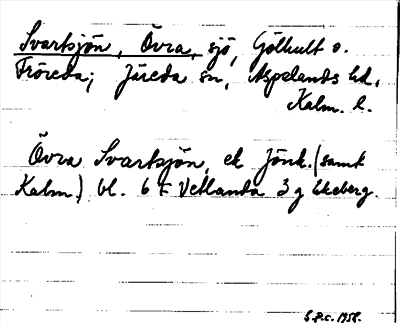 Svartsjön, Övra, sjö, Gölhult o.
Fröreda; Järeda sn, Aspelands hd,
Kalm. l.
Övra Svartsjön, ek Jönk. (samt
Kalm) bl. 6 f Vetlanda 3 g Ekeberg.
1958.